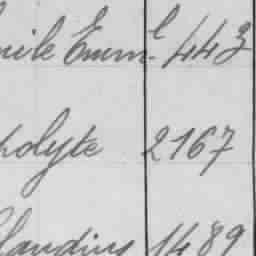 mile Emm.l 443
polyte 2167
laudius 1489